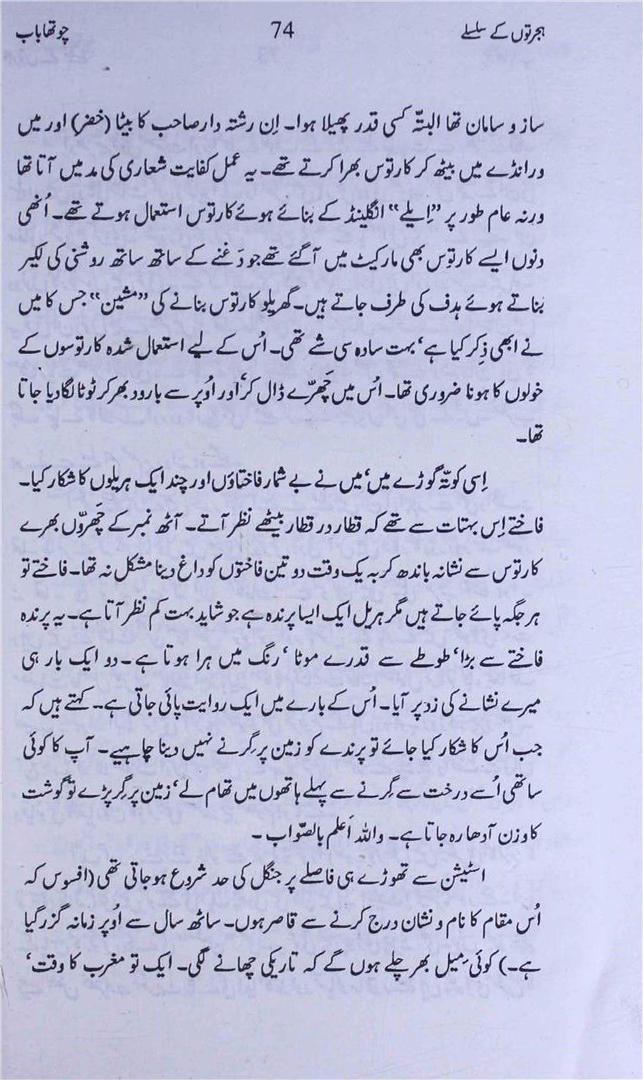 ہجرتوں کے سلسلے 74 چوتھا باب
ساز و سامان تھا البتہّ کسی قدر پھیلا ہوا۔ اِن رشتہ دار صاحب کا بیٹا (خضر) اور میں
ورانڈے میں بیٹھ کر کارتوس بھرا کرتے تھے۔ یہ عمل کفایت شعاری کی مد میں آتا تھا
ورنہ عام طور پر ”اِیلے“ انگلینڈ کے بنائے ہوئے کارتوس استعمال ہوتے تھے۔ اُنھی
دنوں ایسے کارتوس بھی مارکیٹ میں آ گئے تھے جو دَغنے کے ساتھ ساتھ روشنی کی لکیر
بناتے ہوئے ہدف کی طرف جاتے ہیں۔ گھریلو کارتوس بنانے کی ”مشین“ جس کا میں
نے ابھی ذِکر کیا ہے‘ بہت سادہ سی شے تھی۔ اُس کے لیے استعمال شدہ کارتوسوں کے
خولوں کا ہونا ضروری تھا۔ اُس میں چَھرّے ڈال کر‘ اور اُوپر سے بارود بھر کر ٹوٹا لگا دیا جاتا
تھا۔
اِسی کوتہّ گوڑے میں‘ میں نے بے شمار فاختاؤں اور چند ایک ہریلوں کا شکار کیا۔
فاختے اِس بہتات سے تھے کہ قطار در قطار بیٹھے نظر آتے۔ آٹھ نمبر کے چھرّوں بھرے
کارتوس سے نشانہ باندھ کر بہ یک وقت دو تین فاختوں کو داغ دینا مشکل نہ تھا۔ فاختے تو
ہر جگہ پائے جاتے ہیں مگر ہریل ایک ایسا پرندہ ہے جو شاید بہت کم نظر آتا ہے۔ یہ پرندہ
فاختے سے بڑا‘ طوطے سے قدرے موٹا ‘ رنگ میں ہرا ہوتا ہے۔ دو ایک بار ہی
میرے نشانے کی زد پر آیا۔ اُس کے بارے میں ایک روایت پائی جاتی ہے۔ کہتے ہیں کہ
جب اُس کا شکار کیا جائے تو پرندے کو زمین پر گِرنے نہیں دینا چاہیے۔ آپ کا کوئی
ساتھی اُسے درخت سے گِرنے سے پہلے ہاتھوں میں تھام لے‘ زمین پر گِر پڑے تو گوشت
کا وزن آدھا رہ جاتا ہے۔ واللہ اَعلم بالصّواب ۔
اسٹیشن سے تھوڑے ہی فاصلے پر جنگل کی حد شروع ہوجاتی تھی (افسوس کہ
اُس مقام کا نام و نشان درج کرنے سے قاصر ہوں۔ ساٹھ سال سے اُوپر زمانہ گزر گیا
ہے۔) کوئی مِیل بھر چلے ہوں گے کہ تاریکی چھانے لگی۔ ایک تو مغرب کا وقت‘